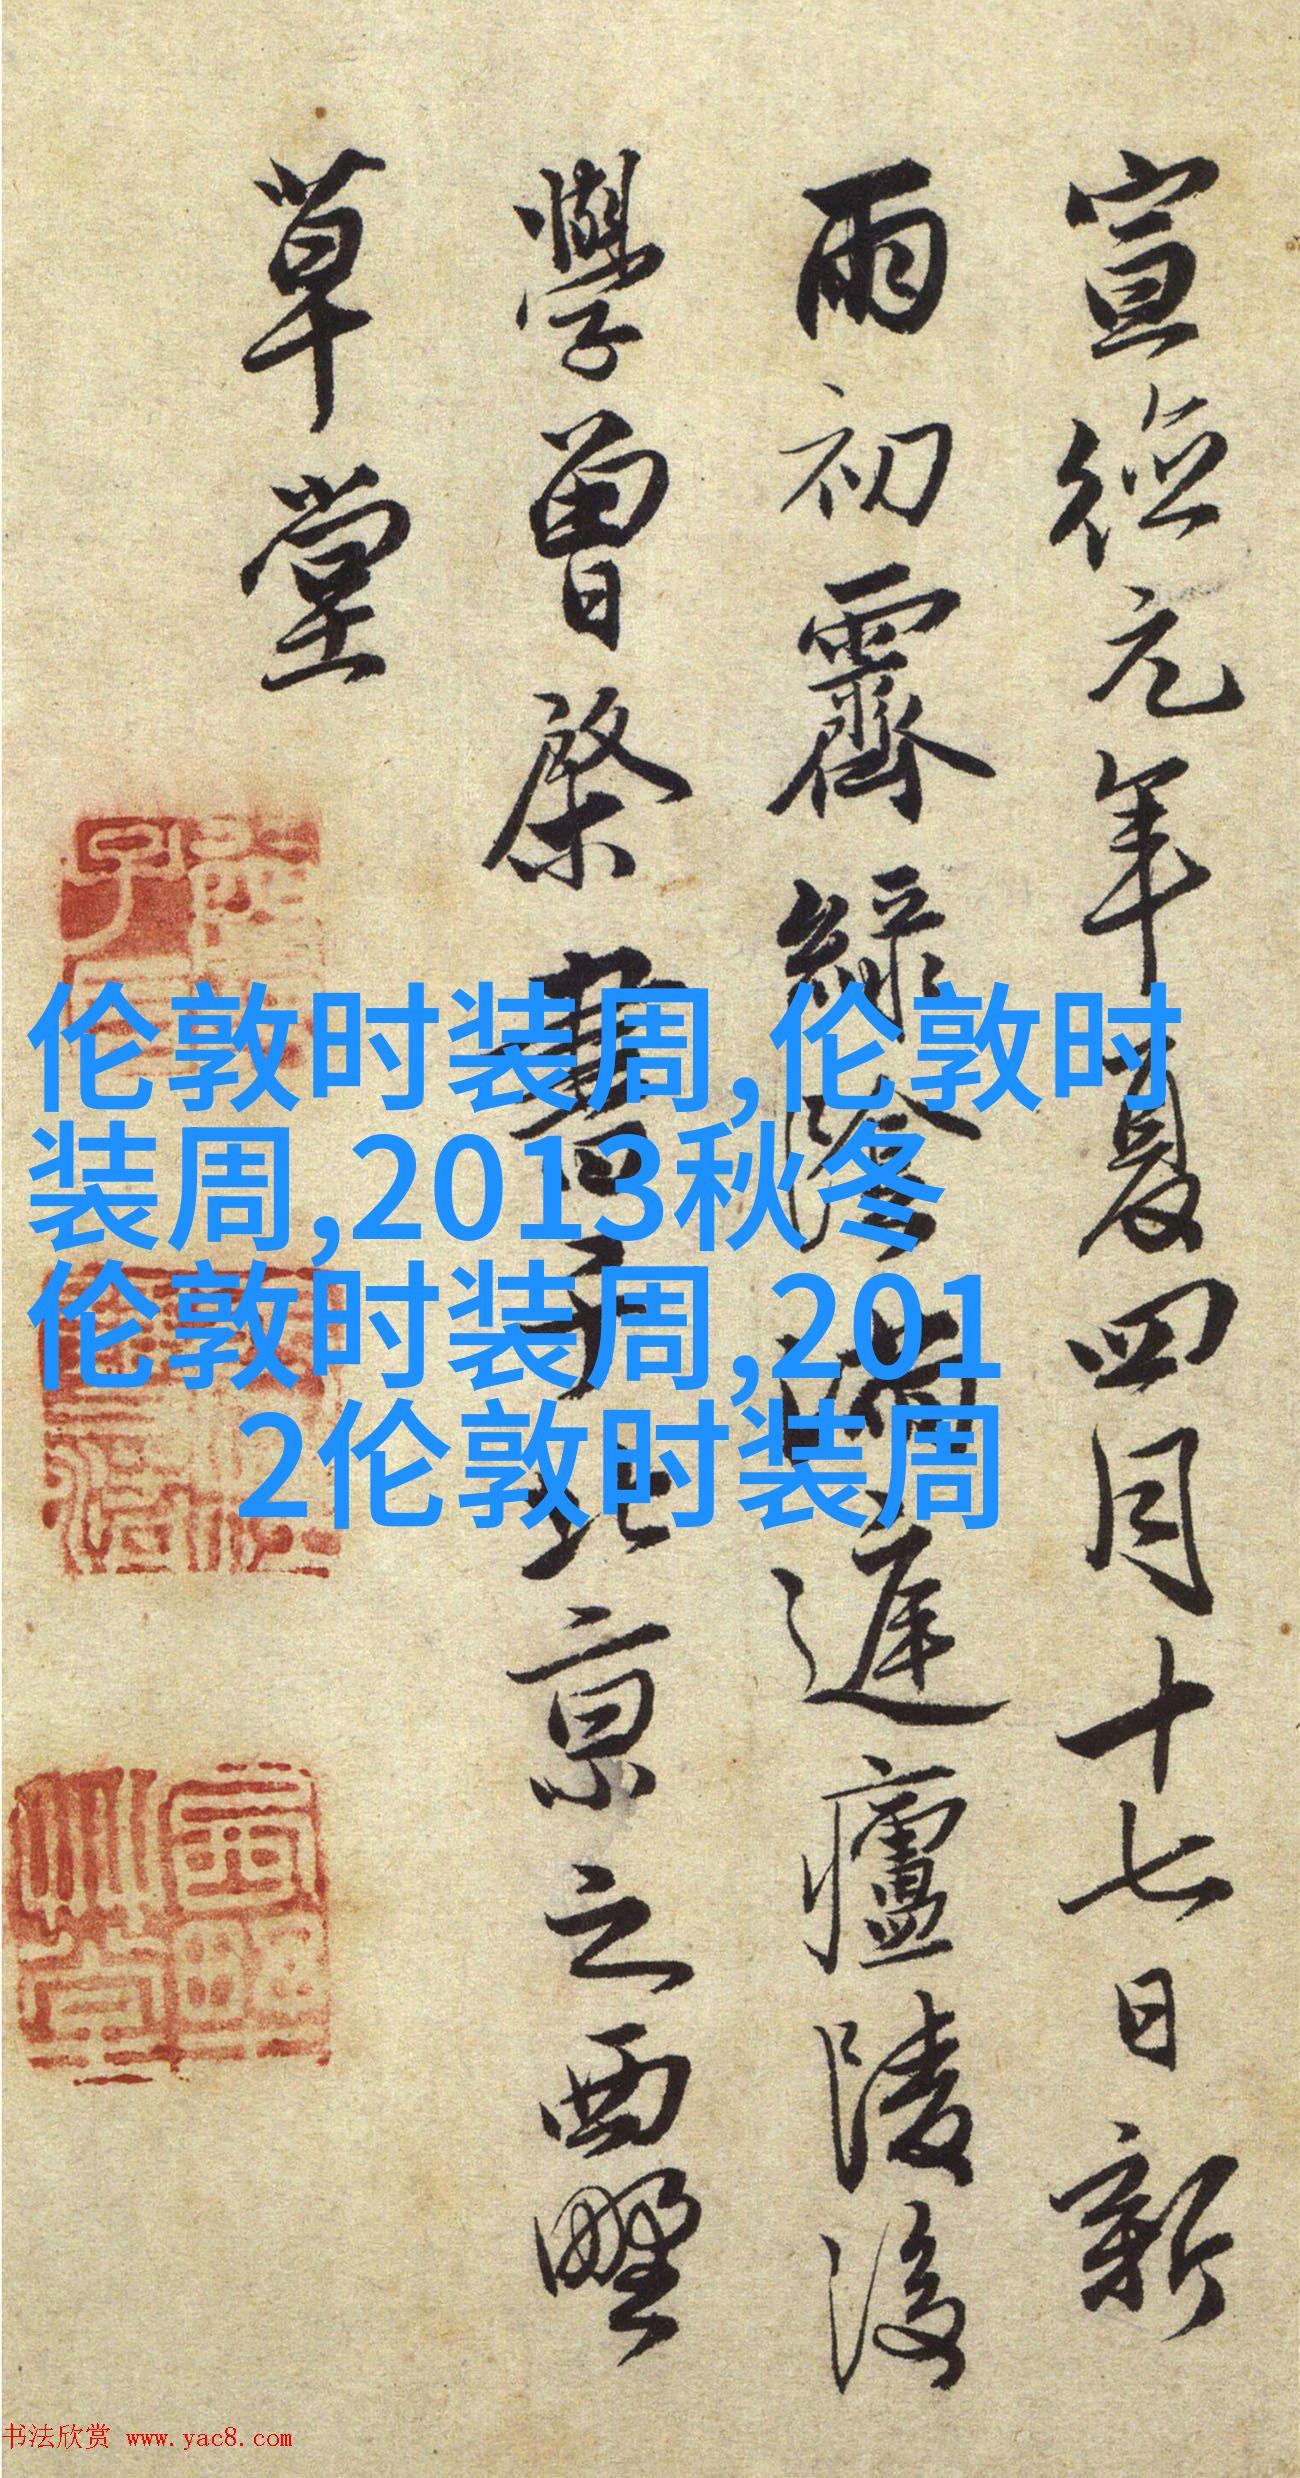 宣德元年夏四月十七日新
雨初霽綠陰滿廬陵後
學曾棨書于北京之西墅
草堂
伦敦时装周,伦敦时
装周,2013秋冬
伦敦时装周,201
2伦敦时装周
书法欣赏 www.yac8.com